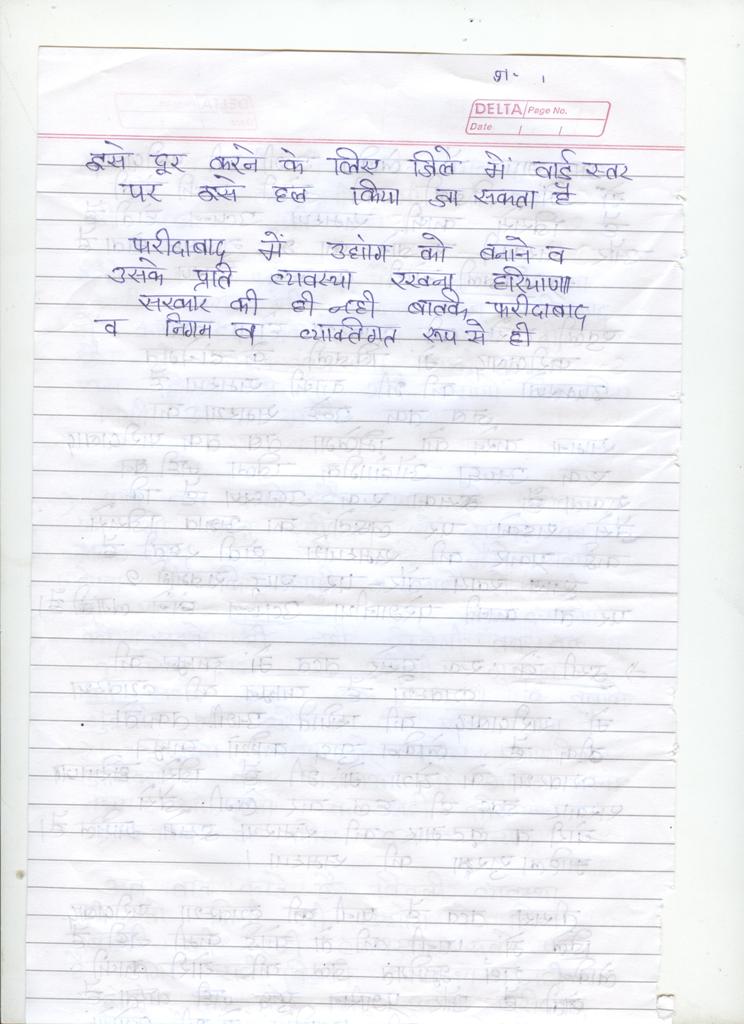 DELTA Page No.
Date
इसे दूर करने के लिए जिले में वार्ड स्तर
पर इसे हल किया जा सकता है
फरीदाबाद में उद्योग को बनाने व
उसके प्रति व्यवस्था रखना हरियाणा
सरकार की ही नही बल्कि फरीदाबाद
व निगम व व्यक्तिगत रूप से ही